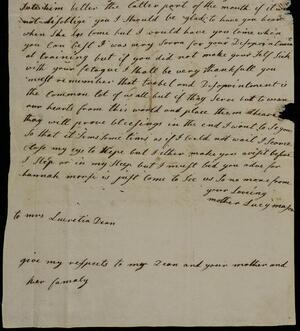 better the latter part of the month if it
not disoblige you I should be glad to have you here
when She has come but I would have you come when
you can best I was very Sorry for your Disappointment
at but if you did not make your Self Sick
with your fatigue I shall be very thankfull you
must remember that trubel and Disappointment is
the common lot of us all but if they Serve but to wean
our hearts from this world and place them
they will prove blessings in the end I want to Se you
So that it Seems Some times as if I cold not wait I
Close my eys to Slepe but I either make you a visit before
I Slep or in my Slep but I must bid you adue for
hannah morse is just come to See us So no more from
your Loveing
mother Lucy
to mrs Lucretia Dean
give my respects to mr Dean and your mother and
her famaly